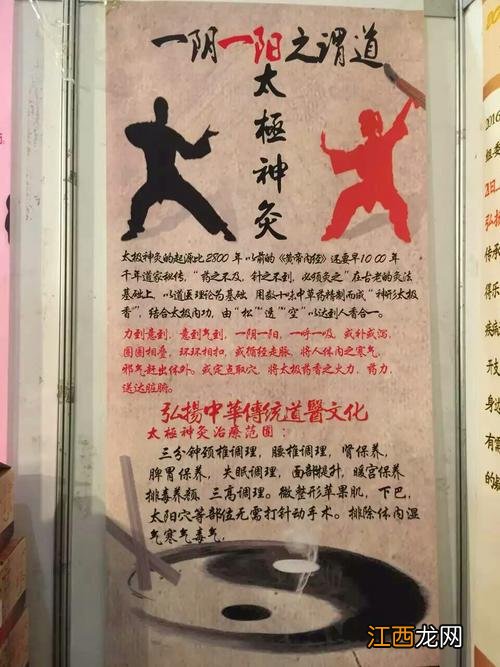 一阴一阳之谓道
太極神灸
太极神灸的起源比2800年以前的《黄帝内经》还要早1000年
千年道家秘传，“药之不及，针之不到，必须灸之”在古老的灸法
基础上，以道医理论为基础 用数十味中草药精制而成“神形太极
香”，结合太极内功，由“松”“透”“空”以达到人香合一。
力到意到，意到气到，一阴一阳，一呼一吸，或补或泻，
圈圈相叠，环环相扣，或循经走脉，将人体内之寒气，
邪气赶出体外。或定点取穴，将太极药香之火力，药力，
送达脏腑。
弘揚中華傳統道醫文化
太極神灸治療范圍：
三分钟颈椎调理，腰椎调理，肾保养，
脾胃保养，失眠调理，面部提升，暖宫保养
排毒养颜 三高调理。微整形苹果肌，下巴，
太阳穴等部位无需打针动手术。排除体内湿
气寒气毒气.
2016
组委
弘扬
传承
得乐
疾病
开支
身边
有需
江西龙网
www.jxlww.com